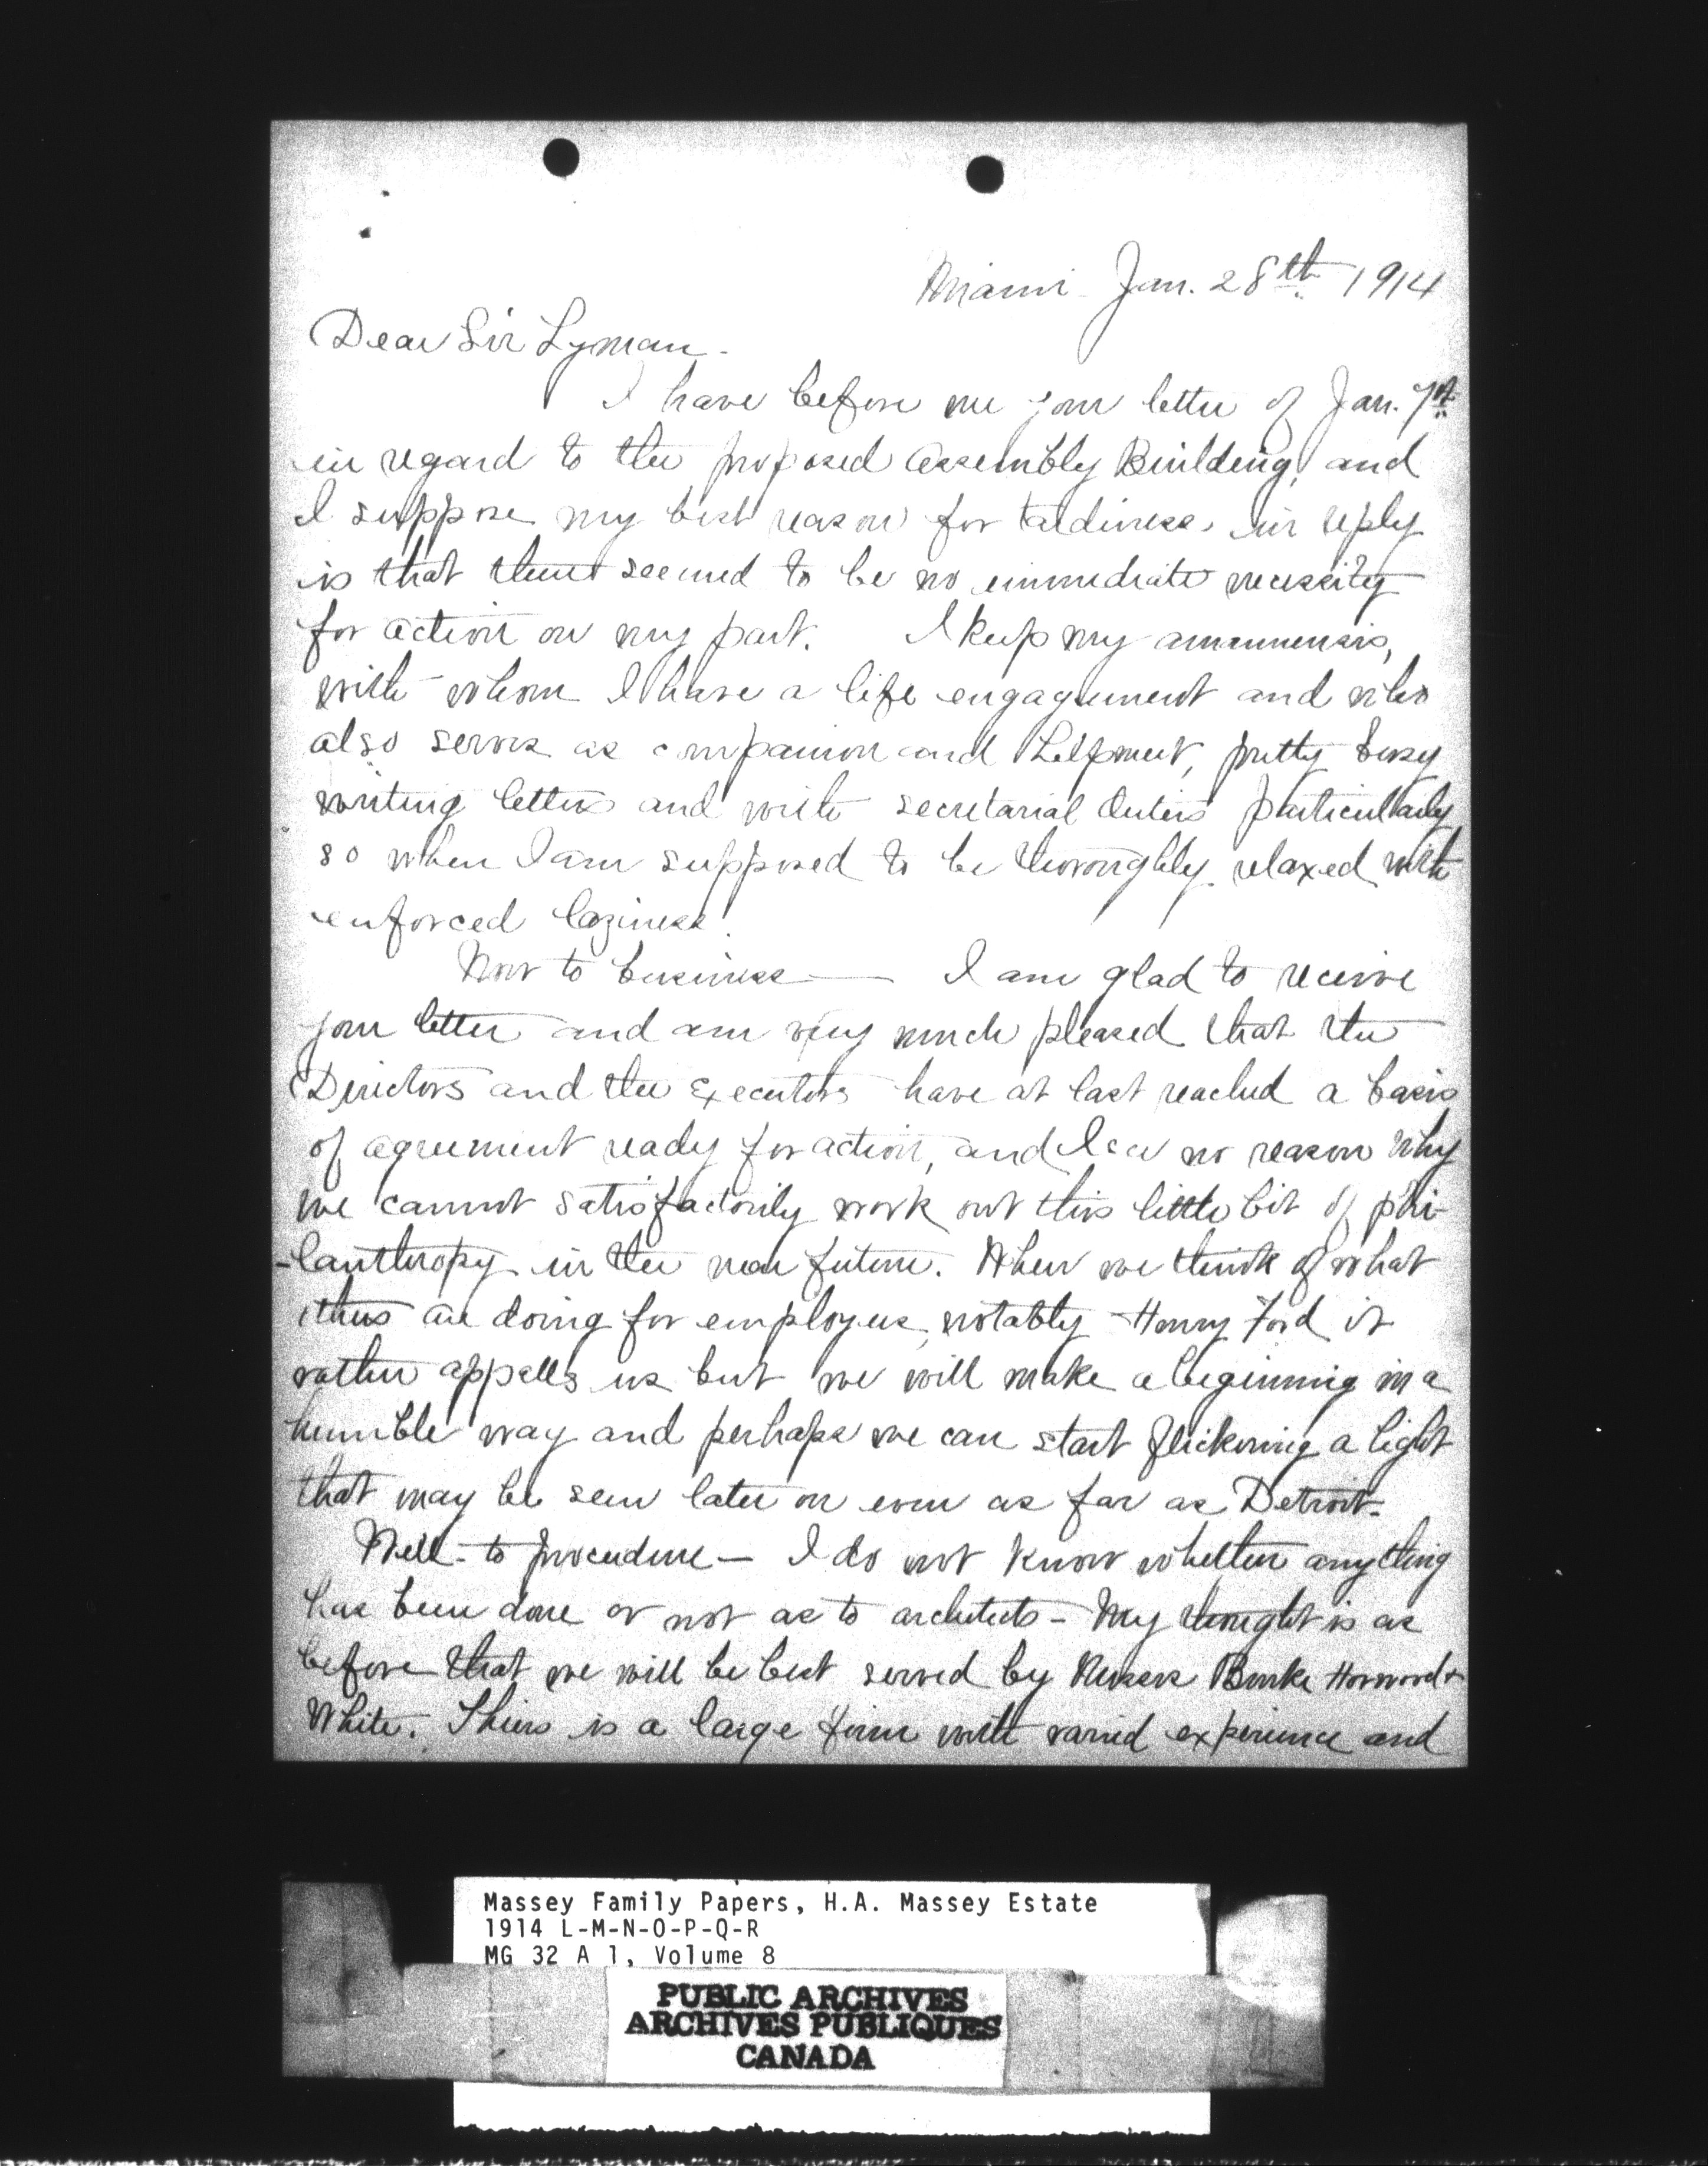 Miami Jan. 28th 1914
Dear Sir Lyman.
I have before me your letter of Jan. 7th
in regard to the proposed Assembly Building, and
I suppose my best reason for tardiness in reply
is that there seemed to be no immediate necessity
for action on my part. I keep my amanuensis,
with whom I have a life engagement and who
also serves as companion and helpmeet, pretty busy
writing letters and with secretarial duties particularly
so when I am supposed to be thoroughly relaxed with
enforced laziness.
Now to business — I am glad to receive
your letter and am very much pleased that the
Directors and the Executors have at last reached a basis
of agreement ready for action, and I see no reason why
we cannot satisfactorily work out this little bit of phi-
-lanthropy in the near future. When we think of what
others are doing for employees, notably Henry Ford it
rather appalls us but we will make a beginning in a
humble way and perhaps we can start flickering a light
that may be seen later on even as far as Detroit.
Well - to procedure — I do not know whether anything
has been done or not as to architects - My thought is as
before that we will be best served by Messrs Burke Horwood &
White. Theirs is a large firm with varied experience and
Massey Family Papers, H.A. Massey Estate
1914 L-M-N-O-P-Q-R
MG 32 A 1, Volume 8
PUBLIC ARCHIVES
ARCHIVES PUBLIQUES
CANADA